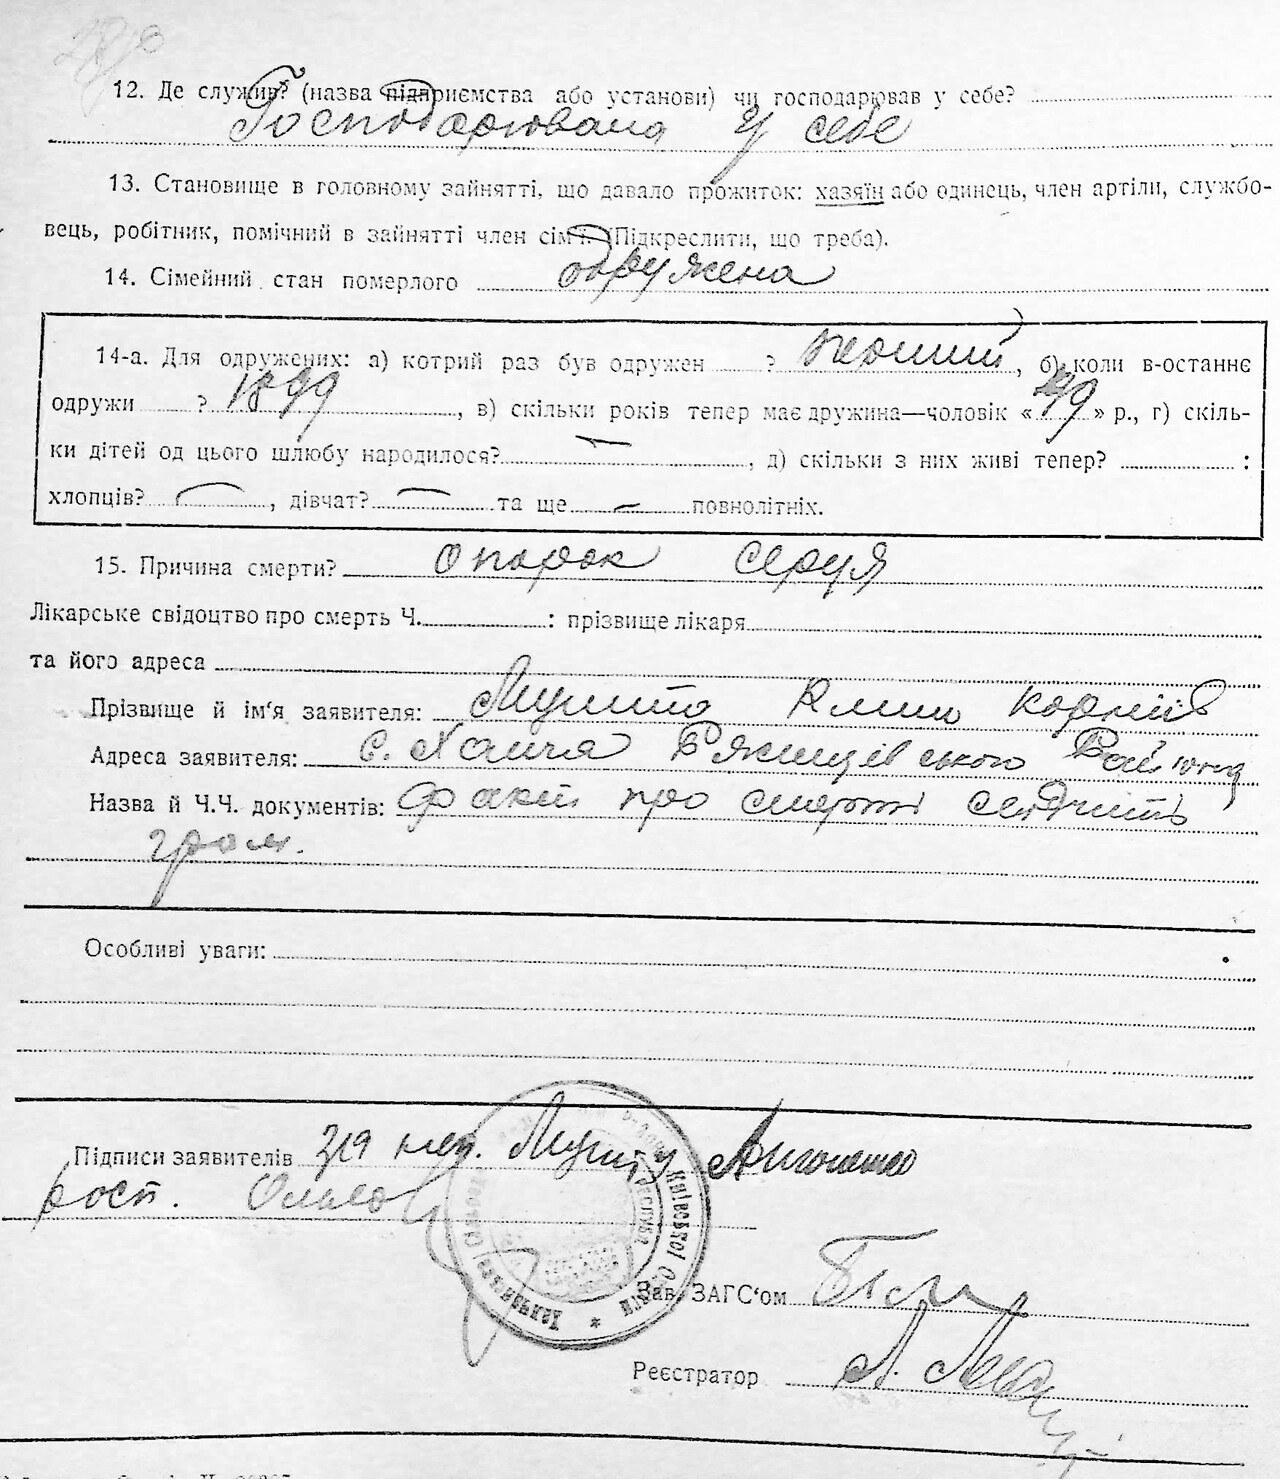 12. Де служив? (назва підприємства або установи) чи господарював у себе?
Господарювала у себе
13. Становище в головному зайнятті, що давало прожиток: хазяїн або одинець, член артіли, службо-
вець, робітник, помічний в зайнятті член сім'ї. (Підкреслити, що треба).
14. Сімейний стан померлого одружена
14-а. Для одружених: а) котрий раз був одружен ? перший, б) коли в-останнє
одружи ? 1899, в) скільки років тепер має дружина—чоловік « » р., г) скіль-
ки дітей од цього шлюбу народилося? —, д) скільки з них живі тепер? :
хлопців? —, дівчат? — та ще — повнолітніх.
15. Причина смерти? опорок серця
Лікарське свідоцтво про смерть Ч. : прізвище лікаря
та його адреса
Прізвище й ім'я заявителя: Клим Корніїв
Адреса заявителя: с. Халчя Ржищівського Району
Назва й Ч.Ч. документів: Факт про смерть свідчить
гром.
Особливі уваги:
Підписи заявителів за нед.
рост.
Київської Округи
Зав. ЗАГС'ом
Реєстратор